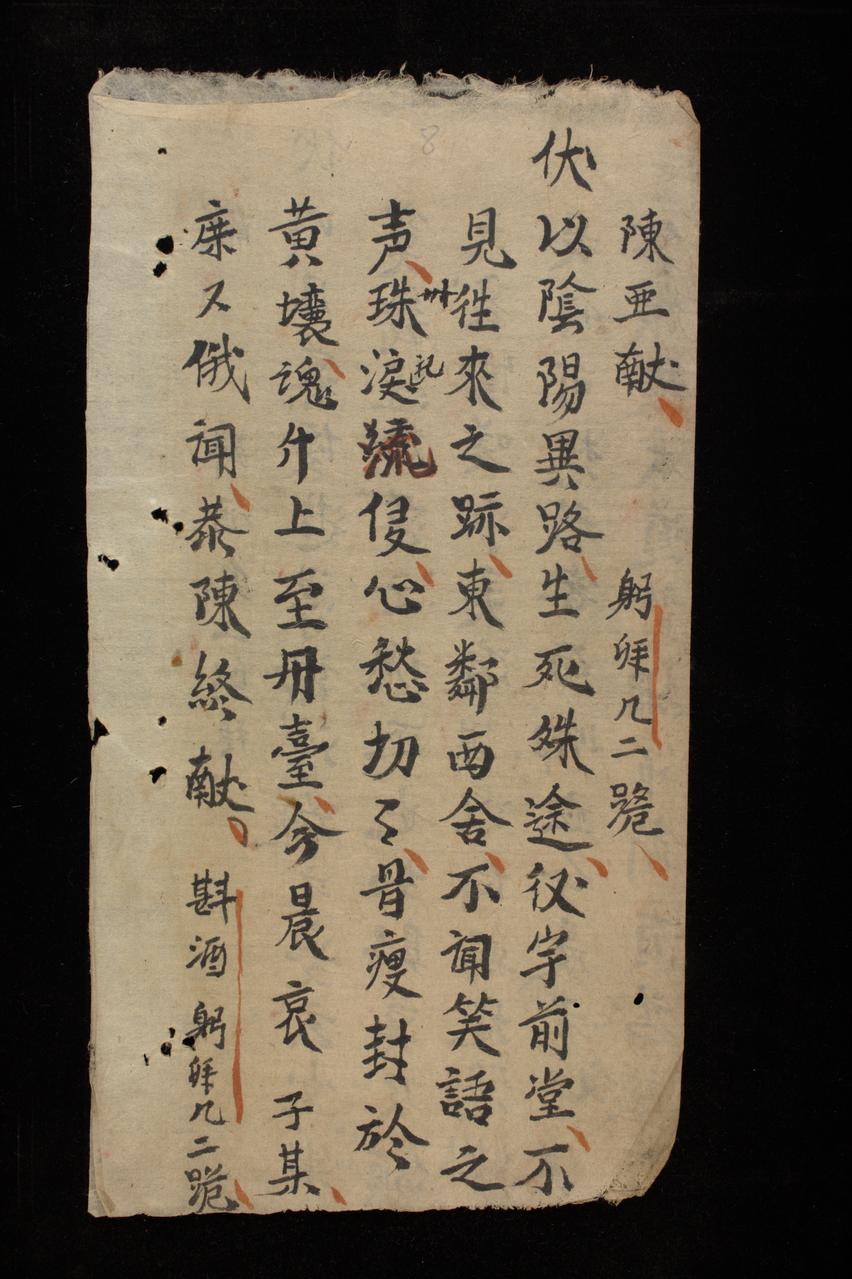 陳亜献 躬拜几二跪
伏以陰陽異路生死姝途後宇前堂不
見徃來之跡東鄰西舍不闻笑語之
声珠淚流侵心愁切々骨瘦封於
黄壤魂升上至丹臺今晨哀子某
又俄闻恭陳終献斟酒躬拜几二跪